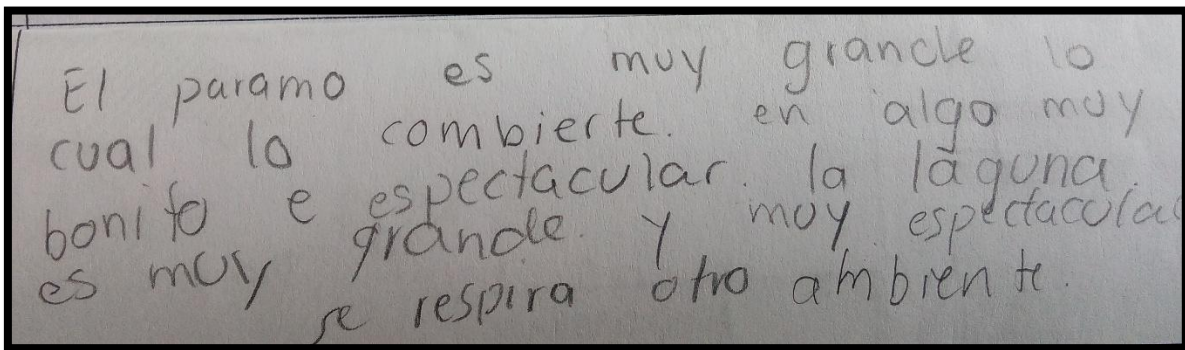 El paramo es muy grande lo
cual lo combierte. en algo muy
bonito e espectacular. la laguna.
es muy grande. y muy espectacular
se respira otro ambiente.